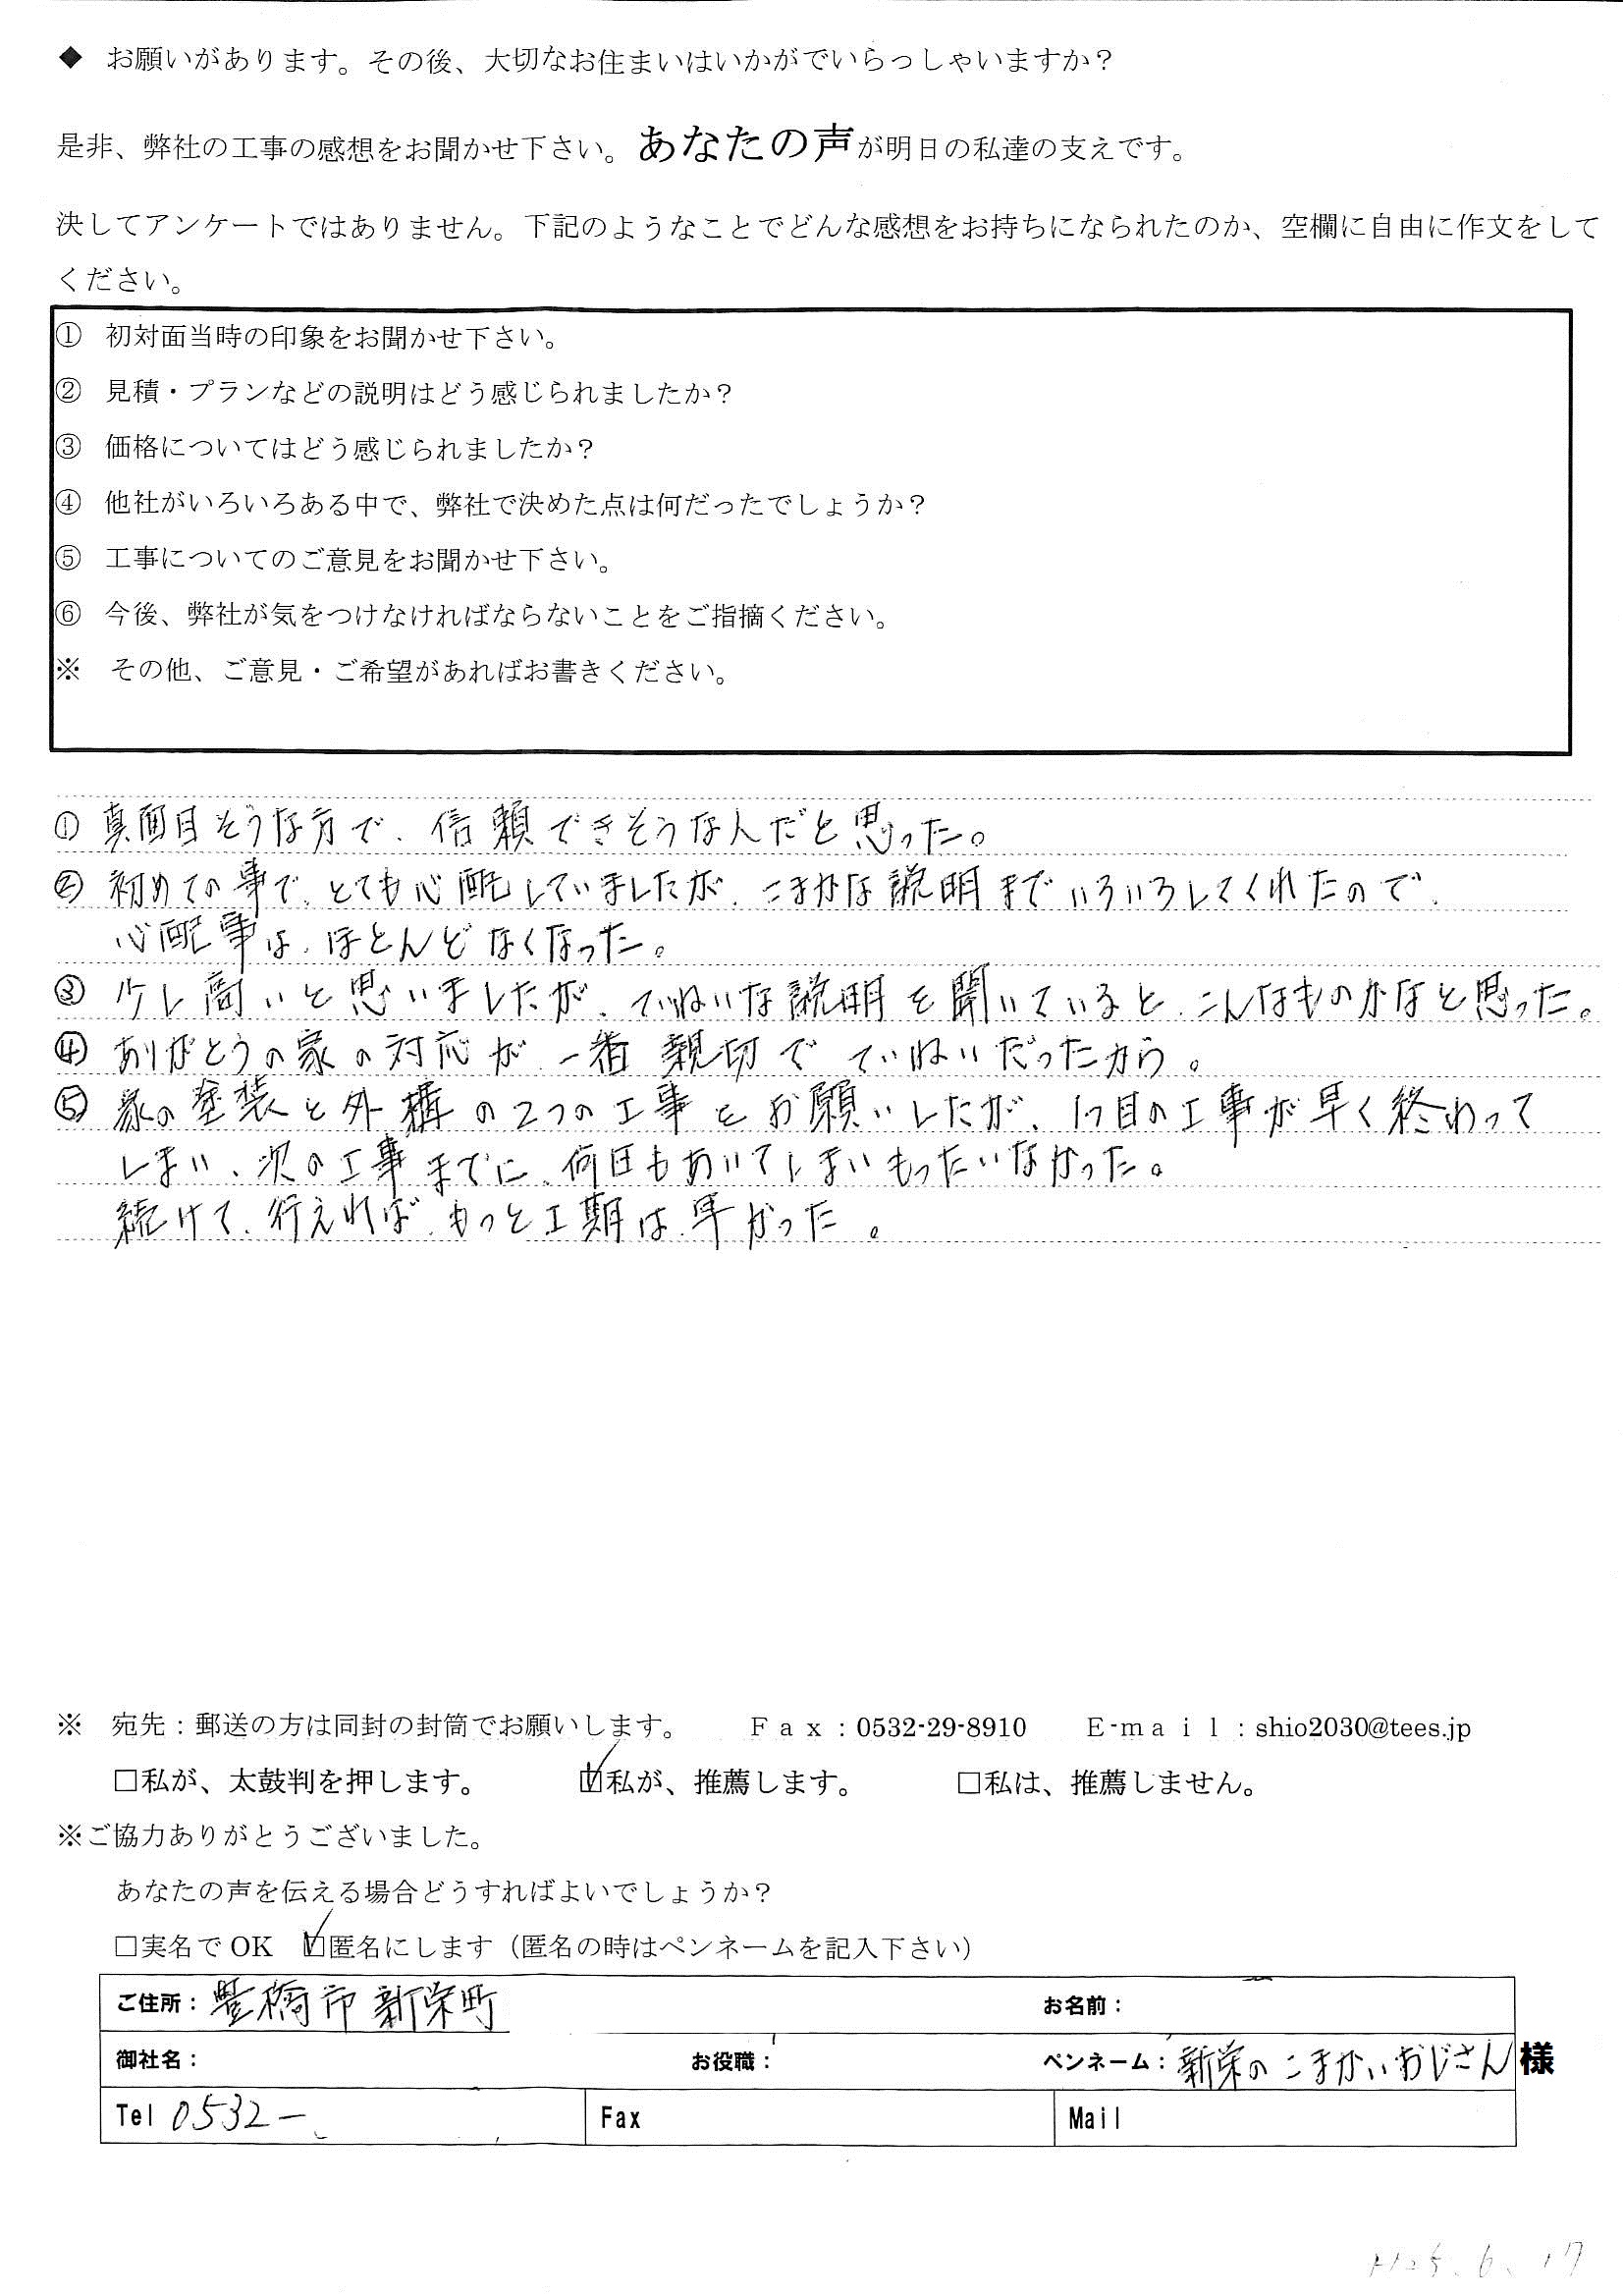 ◆ お願いがあります。その後、大切なお住まいはいかがでいらっしゃいますか？
是非、弊社の工事の感想をお聞かせ下さい。あなたの声が明日の私達の支えです。
決してアンケートではありません。下記のようなことでどんな感想をお持ちになられたのか、空欄に自由に作文をして
ください。
① 初対面当時の印象をお聞かせ下さい。
② 見積・プランなどの説明はどう感じられましたか？
③ 価格についてはどう感じられましたか？
④ 他社がいろいろある中で、弊社で決めた点は何だったでしょうか？
⑤ 工事についてのご意見をお聞かせ下さい。
⑥ 今後、弊社が気をつけなければならないことをご指摘ください。
※ その他、ご意見・ご希望があればお書きください。
① 真面目そうな方で、信頼できそうな人だと思った。
② 初めての事で、とても心配していましたが、こまかな説明までいろいろしてくれたので、
心配事は、ほとんどなくなった。
③ 少し高いと思いましたが、ていねいな説明を聞いていると、こんなものかなと思った。
④ ありがとうの家の対応が一番親切でていねいだったから。
⑤ 家の塗装と外構の2つの工事をお願いしたが、1つ目の工事が早く終わって
しまい、次の工事までに、何日もあいてしまいもったいなかった。
続けて、行えれば、もっと工期は、早かった。
※ 宛先：郵送の方は同封の封筒でお願いします。 Ｆａｘ：0532-29-8910 Ｅ-ｍａｉｌ：shio2030@tees.jp
□私が、太鼓判を押します。 ☑私が、推薦します。 □私は、推薦しません。
※ご協力ありがとうございました。
あなたの声を伝える場合どうすればよいでしょうか？
□実名で OK ☑匿名にします（匿名の時はペンネームを記入下さい）
ご住所：豊橋市新栄町 お名前：
御社名： お役職： ペンネーム：新栄のこまかいおじさん 様
Tel 0532- Fax Mail
H25.6.17